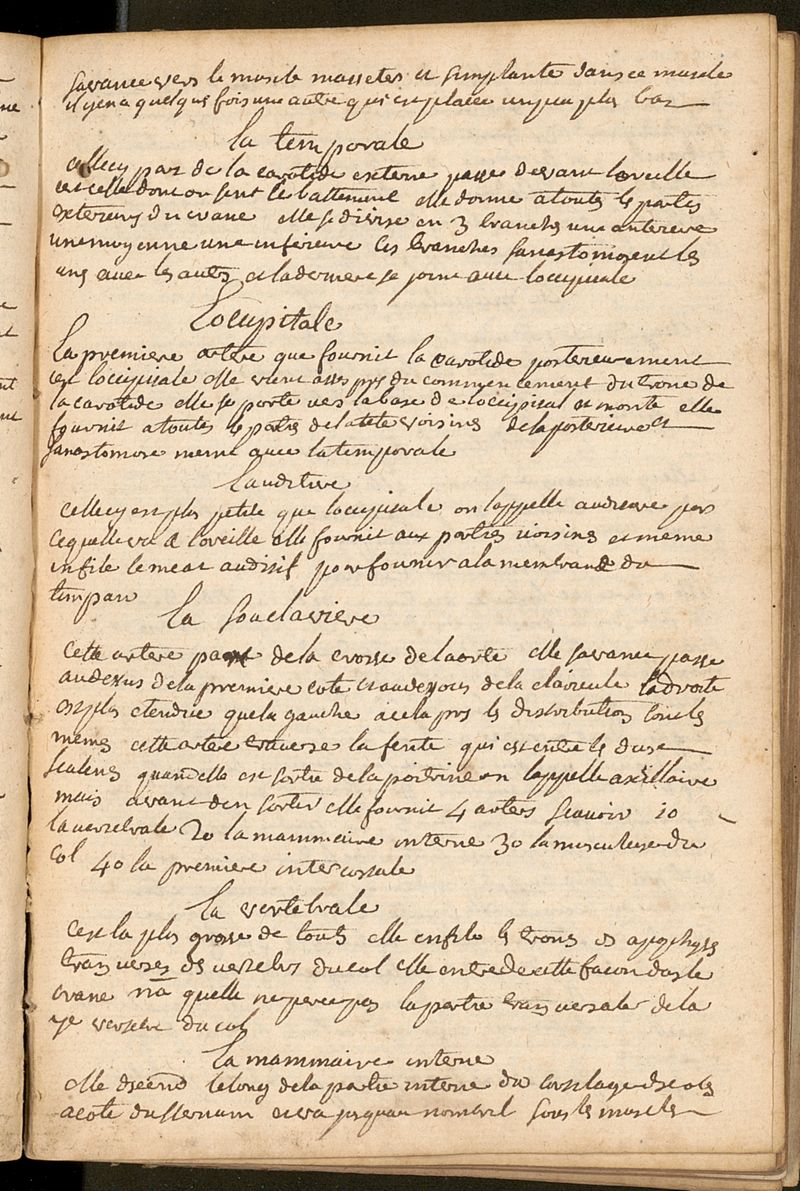 savance vers le muscle masseter et simplante dans ce muscle
il yena quelque fois une autre qui est placée un peu plus bas
La temporale
celle cy part de la carotide externe passe devant loreille
cest celle dont on sent le battement elle donne a toutes les parties
exterieurs du crane elle se divise en 3 branches une anterieure
une moyenne une inferieure ces branches sanastomosent les
uns avec les autres et la derniere se joint avec loccipitale
Loccipitale
La premiere artere que fournit la carotide posterieurement
est loccipitale elle vient asses pres du commencement du tronc de
la carotide elle se porte vers la base de loccipital et monte elle
fournit a toutes les parties de la tete voisines de la posterieure et
sanastomose meme avec la temporale
Lauditive
celle cy est plus petite que loccipitale on lappelle auditive par
ce quelle va a loreille elle fournit aux parties voisines et meme
enfile le meat auditif pour fournir a la membrane du
timpan
La souclaviere
cette artere part de la crosse de laorte elle savance passe
audessus de la premiere cote et audessous de la clavicule la droite
est plus etendue que la gauche a cela pres les distributions sont les
memes cette artere traverse la fente qui est entre les deux
scalenes quand elle est sortie de la poitrine on lappelle axillaire
mais avant den sortir elle fournit 4 arteres scavoir 1o
la vertebrale 2o la mammaire interne 3o la musculeuse du
col 4o la premiere intercostale
La vertebrale
cest la plus grosse de toutes elle enfile les trous des apophyses
transverses des vertebres du col elle entre de cette facon dans le
crane quelle ne perce pas la partie transversale de la
7e vertebre du col
La mammaire interne
elle descend le long de la partie interne du cartilage des cotes
a cote du sternum et va jusquau nombril sous les muscles